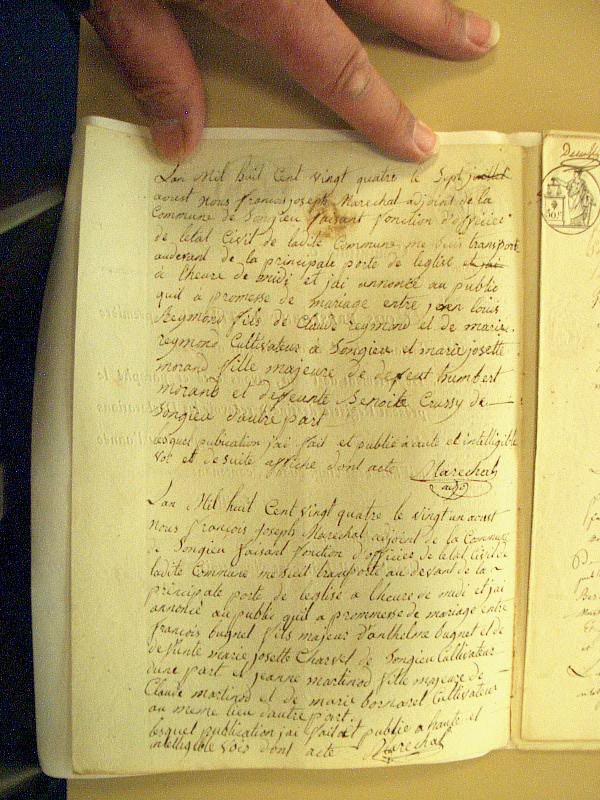 Lan Mil huit Cent vingt quatre le Sept juillet
aoust nous françois joseph Marechal adjoint de la
Commune de Songieu faisant fonction d'officier
de letat Civil de ladite Commune me suis transporté
audevant de la principale porte de leglise et jai
a lheure de midi et jai annoncé au public
quil a promesse de mariage entre jean louis
Reymond fils de Claude reymond et de marie
reymond Cultivateur a Songieu et marie josette
morand fille majeure de deffeut humbert
morant et deffeunte Benoite Crussy de
Songieu dautre part
lesquel publication jai fait et publié a aute et intelligible
voi et desuite affiché dont acte Marechal
adj
Lan Mil huit Cent vingt quatre le vingt un aoust
nous françois joseph Marechal adjoint de la Commune
de Songieu faisant fonction d'officier de letat Civil de
ladite Commune me suit transporté au devant de la
principale porte de leglise a lheure de midi et jai
annoncé au public quil a prommesse de mariage entre
françois bugnet fils majeur d'anthelme bugnet et de
defunte marie josette Charvet de Songieu Cultivateur
dune part et jeanne martinod fille majeure de
Claude martinod et de marie bornaret Cultivateur
au meme lieu dautre part.
lesquel publication jai fait et publié a haute et
intelligible vois dont acte Marechal